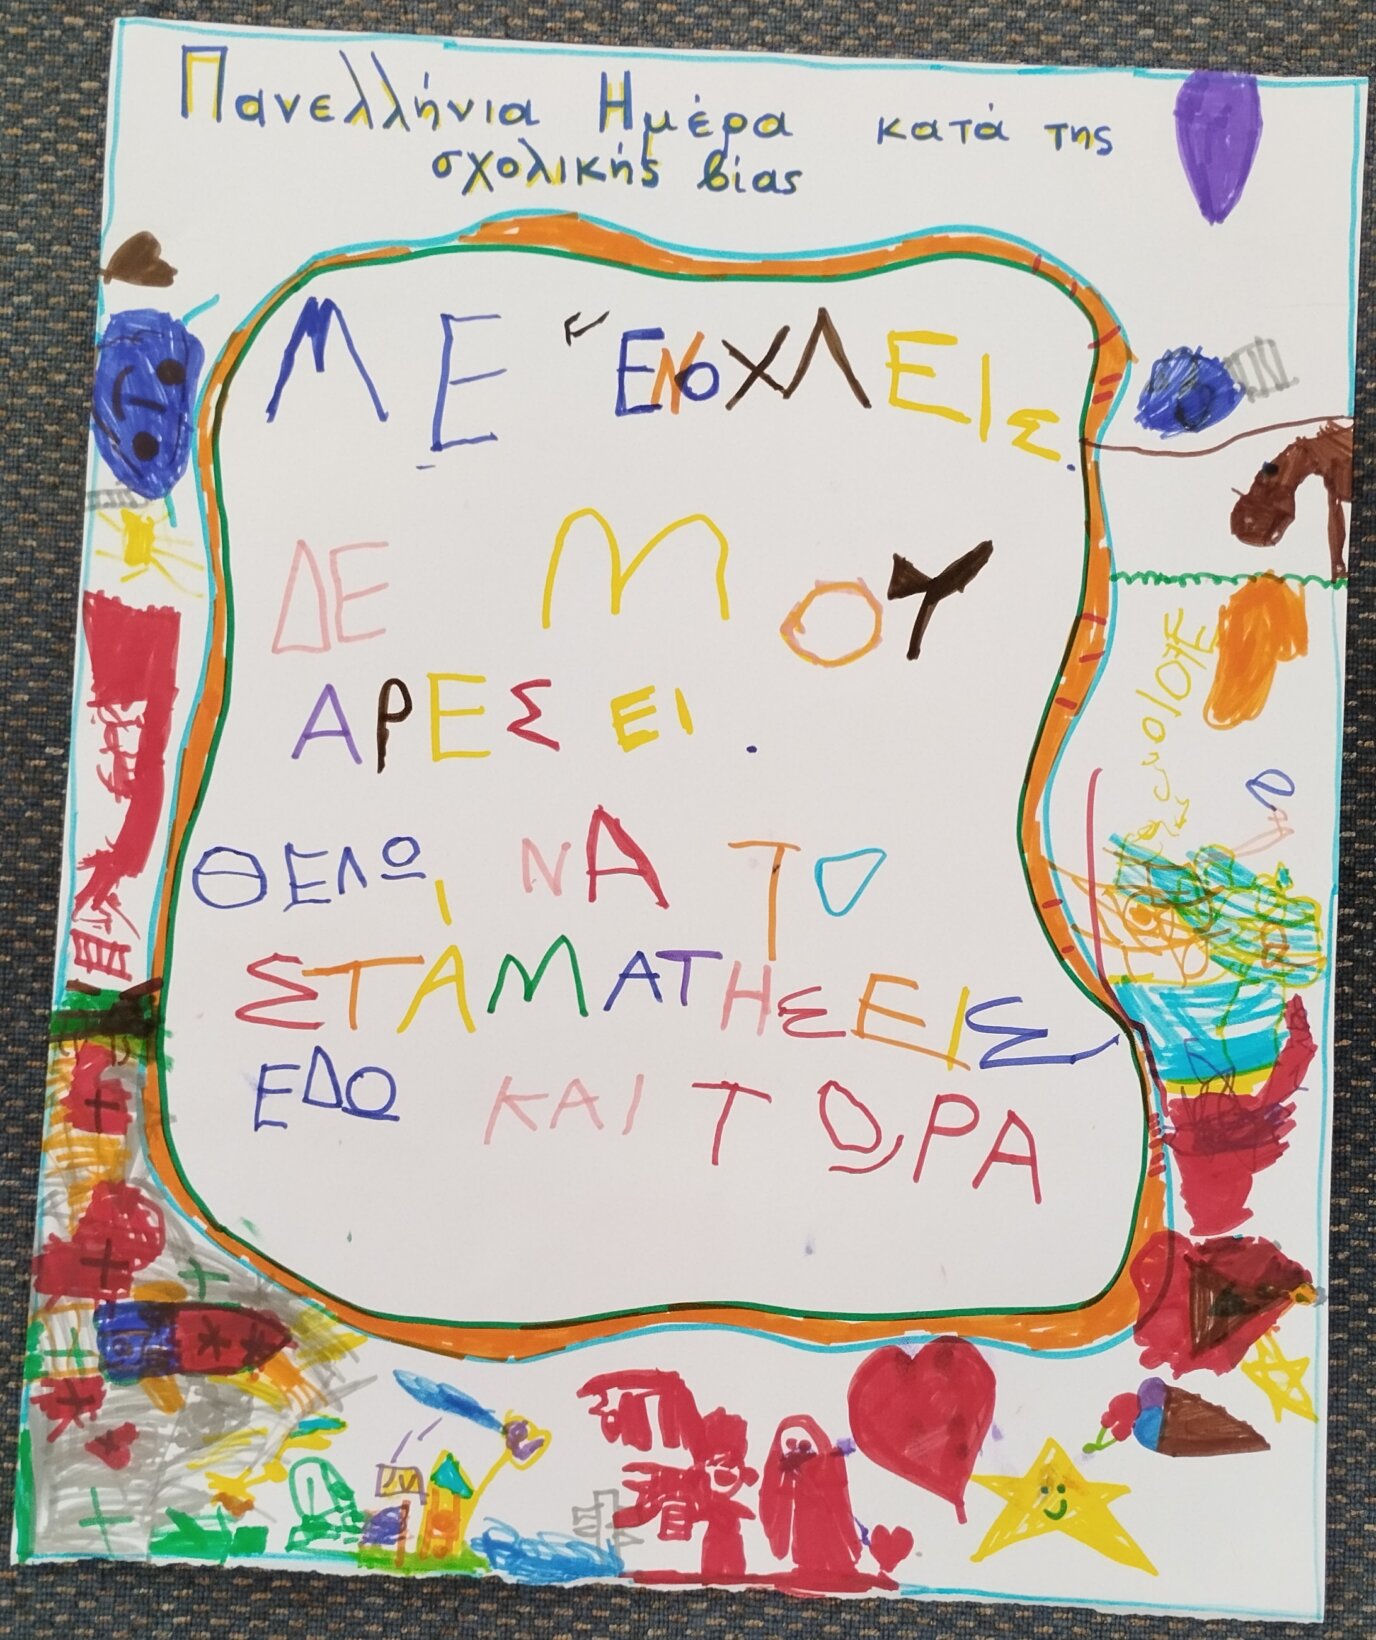 Πανελλήνια Ημέρα κατά της
σχολικής βίας
ΜΕ ΕΝΟΧΛΕΙΣ.
ΔΕ ΜΟΥ
ΑΡΕΣΕΙ.
ΘΕΛΩ, ΝΑ ΤΟ
ΣΤΑΜΑΤΗΣΕΙΣ
ΕΔΩ ΚΑΙ ΤΩΡΑ